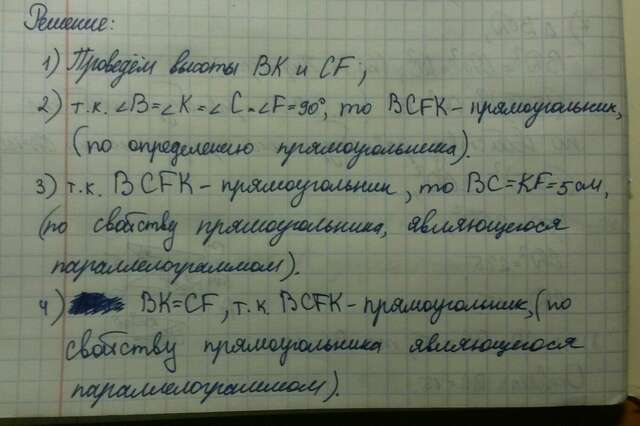 Решение:
1) Проведём высоты BK и CF;
2) т.к. ∠B=∠K=∠C=∠F=90°, то BCFK – прямоугольник,
(по определению прямоугольника).
3) т.к. BCFK – прямоугольник, то BC=KF=5см,
(по свойству прямоугольника, являющегося
параллелограммом).
4) BK=CF, т.к BCFK – прямоугольник, (по
свойству прямоугольника являющегося
параллелограммом).